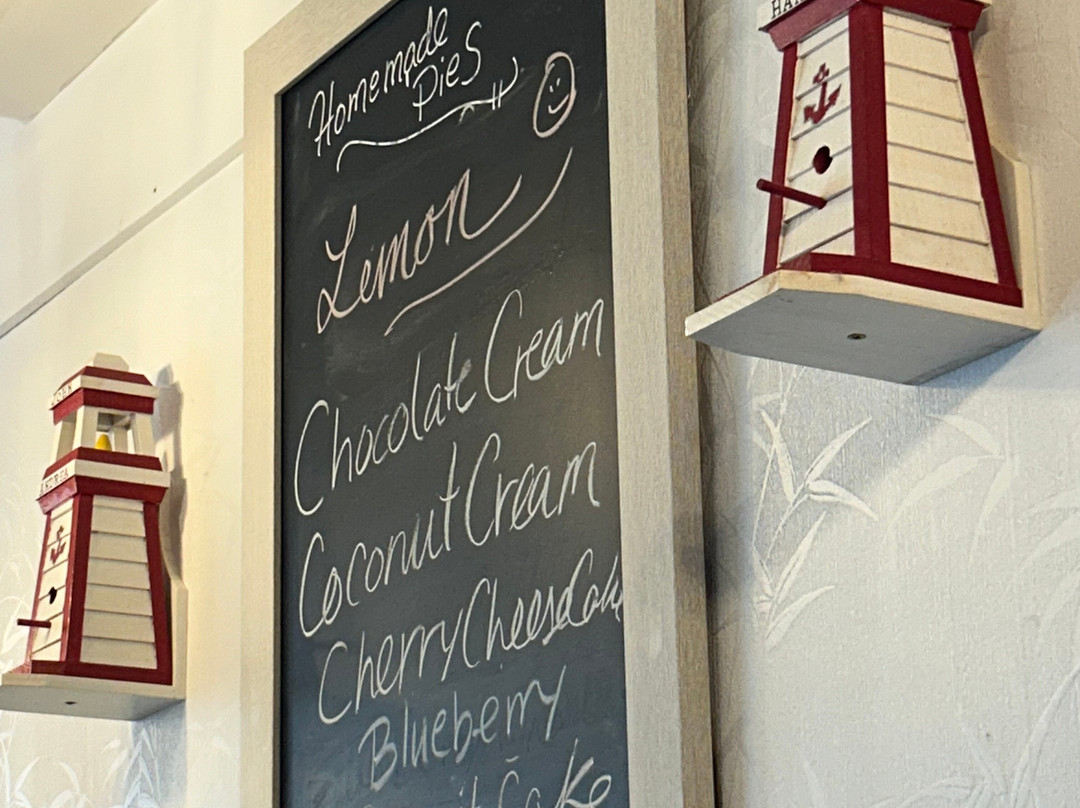 Homemade
Pies
Lemon
Chocolate Cream
Coconut Cream
Cherry CheeseCake
Blueberry
Cake